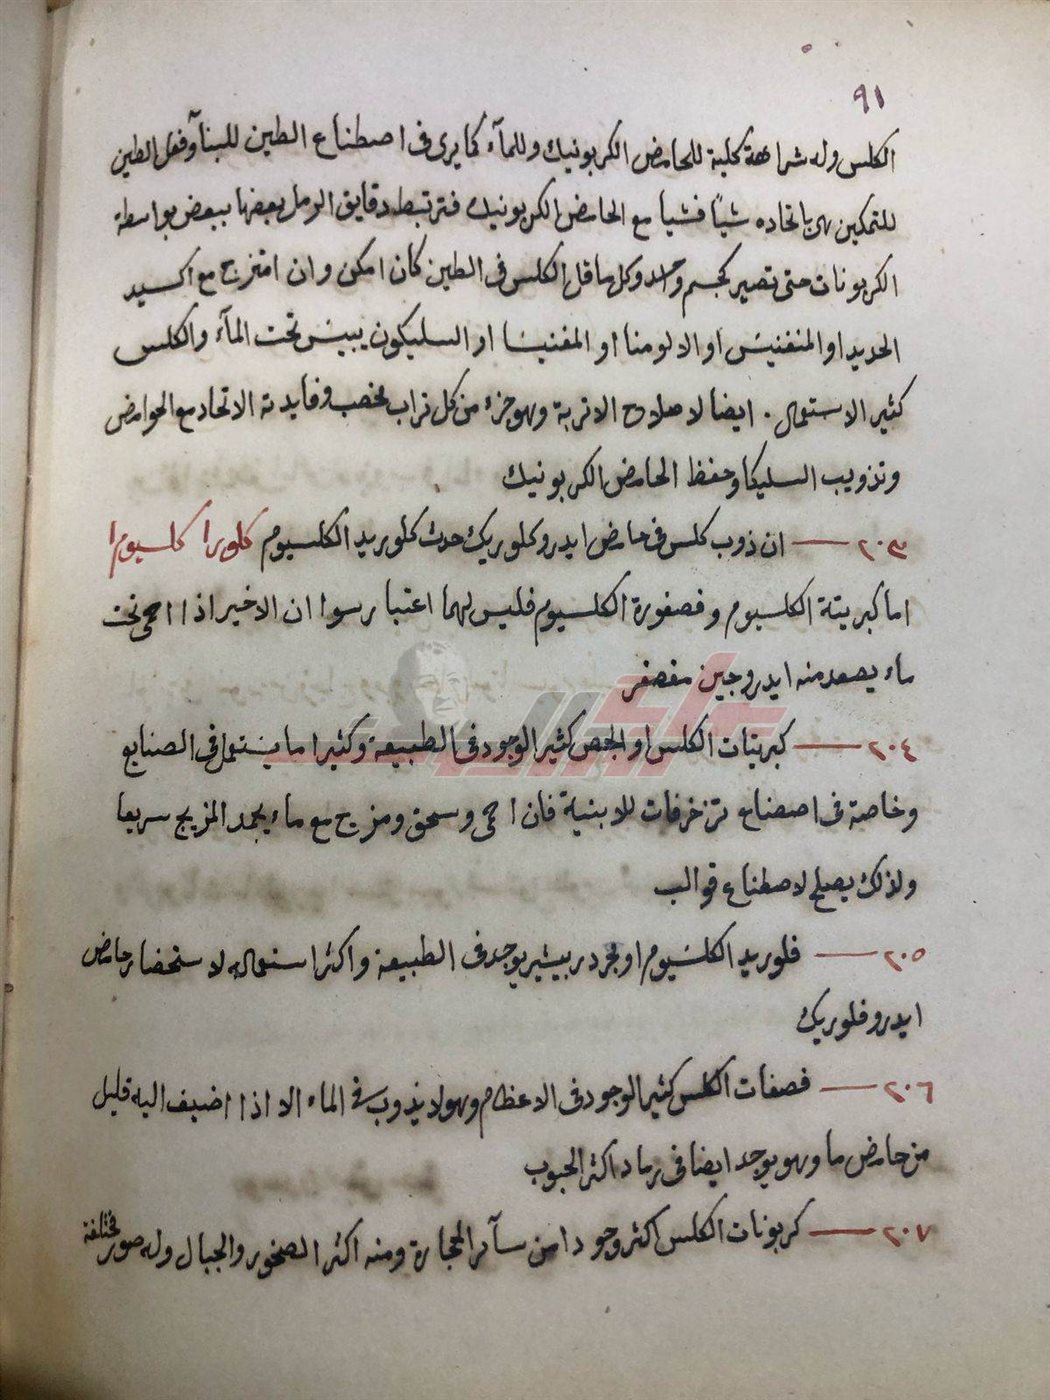 ٩١
الكلس وله شراهة كلية للحامض الكربونيك وللمآء كما يرى فى اصطناع الطين للبنآ وفعل الطين
للتمكين هى باتحاده شيأ فشيا مع الحامض الكربونيك فترتبط دقايق الرمل بعضها ببعض بواسطة
الكربونات حتى تصير كجسم واحد وكل ما قل الكلس فى الطين كان امكن وان امتزج مع اكسيد
الحديد او المنغنيس او الالومنا او المغنيسا او السليكون ييبس تحت المآء والكلس
كثير الاستعمال . ايضا لاصلاح الاتربة وهو جزء من كل تراب مخصب وفايدته الاتحاد مع الحوامض
وتذويب السليكا وحفظ الحامض الكربونيك
٢٠٣ — ان ذوب كلس فى حامض ايدروكلوريك حدث كلوريد الكلسيوم كلورا كلسيوم ا
اما كبريتة الكلسيوم وفصفورة الكلسيوم فليس لهما اعتبار سوا ان الاخير اذا احمى تحت
ماء يصعد منه ايدروجين مفصفر
٢٠٤ — كبريتات الكلس او الجص كثير الوجود فى الطبيعة وكثيرا ما يستعمل فى الصنايع
وخاصة فى اصطناع تزخرفات للابنية فان احمى وسحق ومزج مع ماء يجمد المزيج سريعا
ولذلك يصلح لاصطناع قوالب
٢٠٥ — فلوريد الكلسيوم او لجرد ربيشير يوجد فى الطبيعة واكثر استعماله لاستحضار حامض
ايدروفلوريك
٢٠٦ — فصفات الكلس كثير الوجود فى الاعظام وهو لا يذوب فى الماء الا اذا اضيف اليه قليل
من حامض ما وهو يوجد ايضا فى رماد اكثر الحبوب
٢٠٧ — كربونات الكلس اكثر وجودا من سآئر الحجارة ومنه اكثر الصخور والجبال وله صور مختلفة